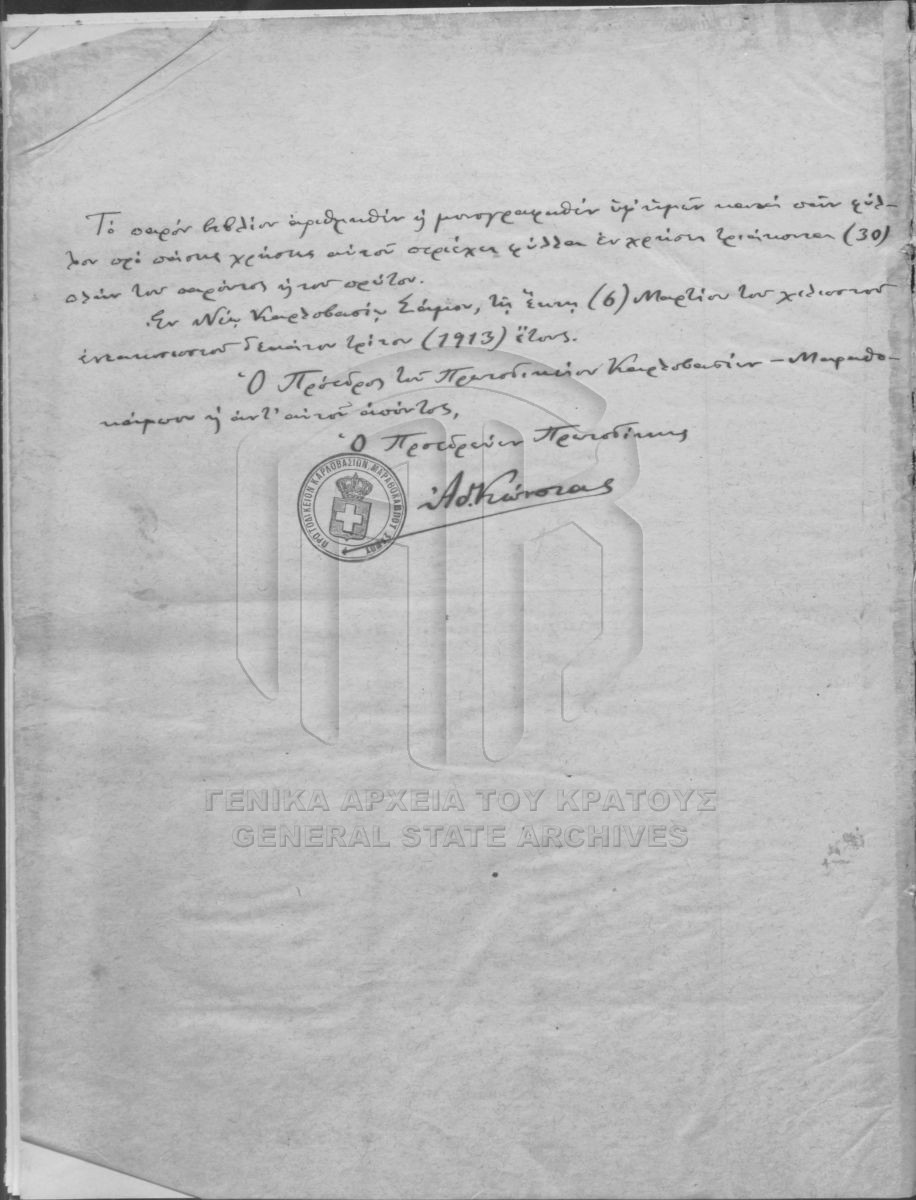 Τὸ παρόν βιβλίον ἀριθμηθέν ἡ μονογραφηθέν ὑφ' ἡμῶν κατά πᾶν φύλ-
λον πρό πάσης χρήσης αὐτοῦ περιέχει φύλλα ἐν χρήσει τριάκοντα (30)
πλήν του παρόντος ἡ του πρώτου.
Ἐν Νέῳ Καρλοβασίῳ Σάμου, τῇ ἕκτῃ (6) Μαρτίου του χιλιοστοῦ
ἐννακοσιοστοῦ δεκάτου τρίτου (1913) ἔτους.
Ὁ Πρόεδρος τοῦ Πρωτοδικείου Καρλοβασίων - Μαραθο-
κάμπου ἡ ἀντ' αὐτοῦ ἀπόντος,
Ὁ Προεδρεύων Πρωτοδίκης
ΠΡΩΤΟΔΙΚΕΙΟΝ ΚΑΡΛΟΒΑΣΙΩΝ ΜΑΡΑΘΟΚΑΜΠΟΥ ΣΑΜΟΥ
ΓΕΝΙΚΑ ΑΡΧΕΙΑ ΤΟΥ ΚΡΑΤΟΥΣ
GENERAL STATE ARCHIVES